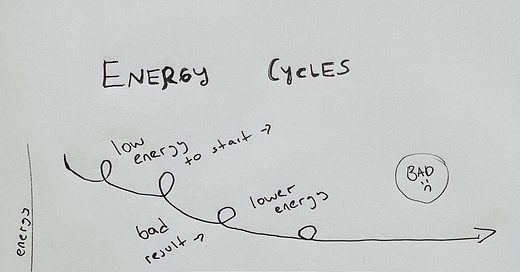 ENERGY CYCLES
low
energy
to start →
lower
energy
bad
result →
BAD
energy